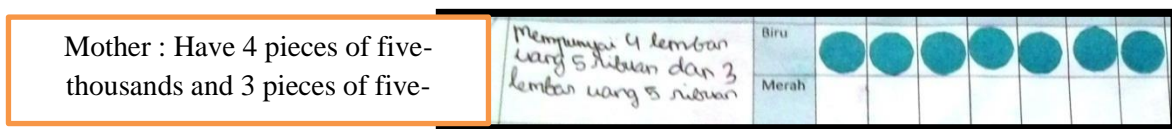 Mother : Have 4 pieces of five-
thousands and 3 pieces of five-
Mempunyai 4 lembar
uang 5 ribuan dan 3
lembar uang 5 ribuan
Biru
Merah